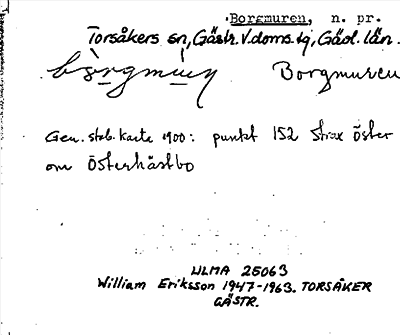 Borgmuren, n. pr.
Torsåkers sn, Gästr. V. doms. tg, Gävl. län.
Borgmuren
Gen. stab. karta 1900: punkt 152 strax öster
om Österhästbo
ULMA 25063
William Eriksson 1947-1963. TORSÅKER
GÄSTR.